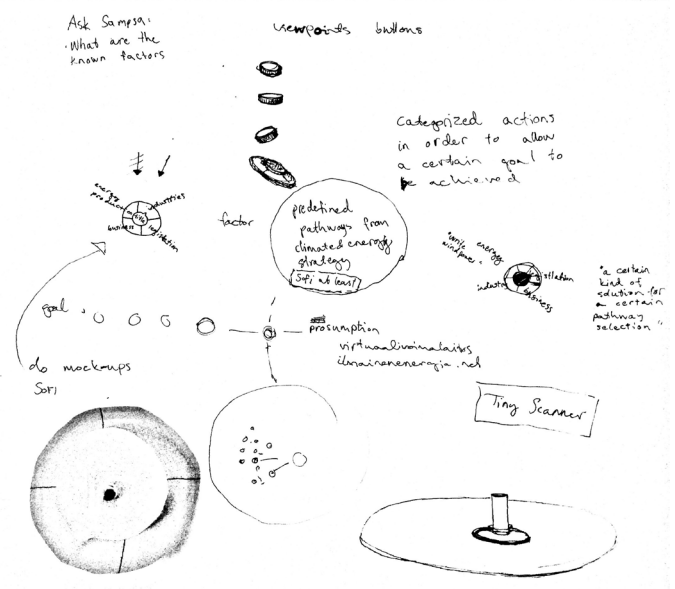 Ask Sampsa:
· What are the
known factors
viewpoints buttons
Categorized actions
in order to allow
a certain goal to
be achieved
energy
production
industries
business
legislation
factor
predefined
pathways from
climate&energy
strategy
Sofi at least
"while energy
industry
business
"a certain
kind of
solution for
a certain
pathway
selection"
goal
prosumption
virtuaalivoimalaitos
ilmainenenergia.net
do mockups
Sofi
Tiny Scanner